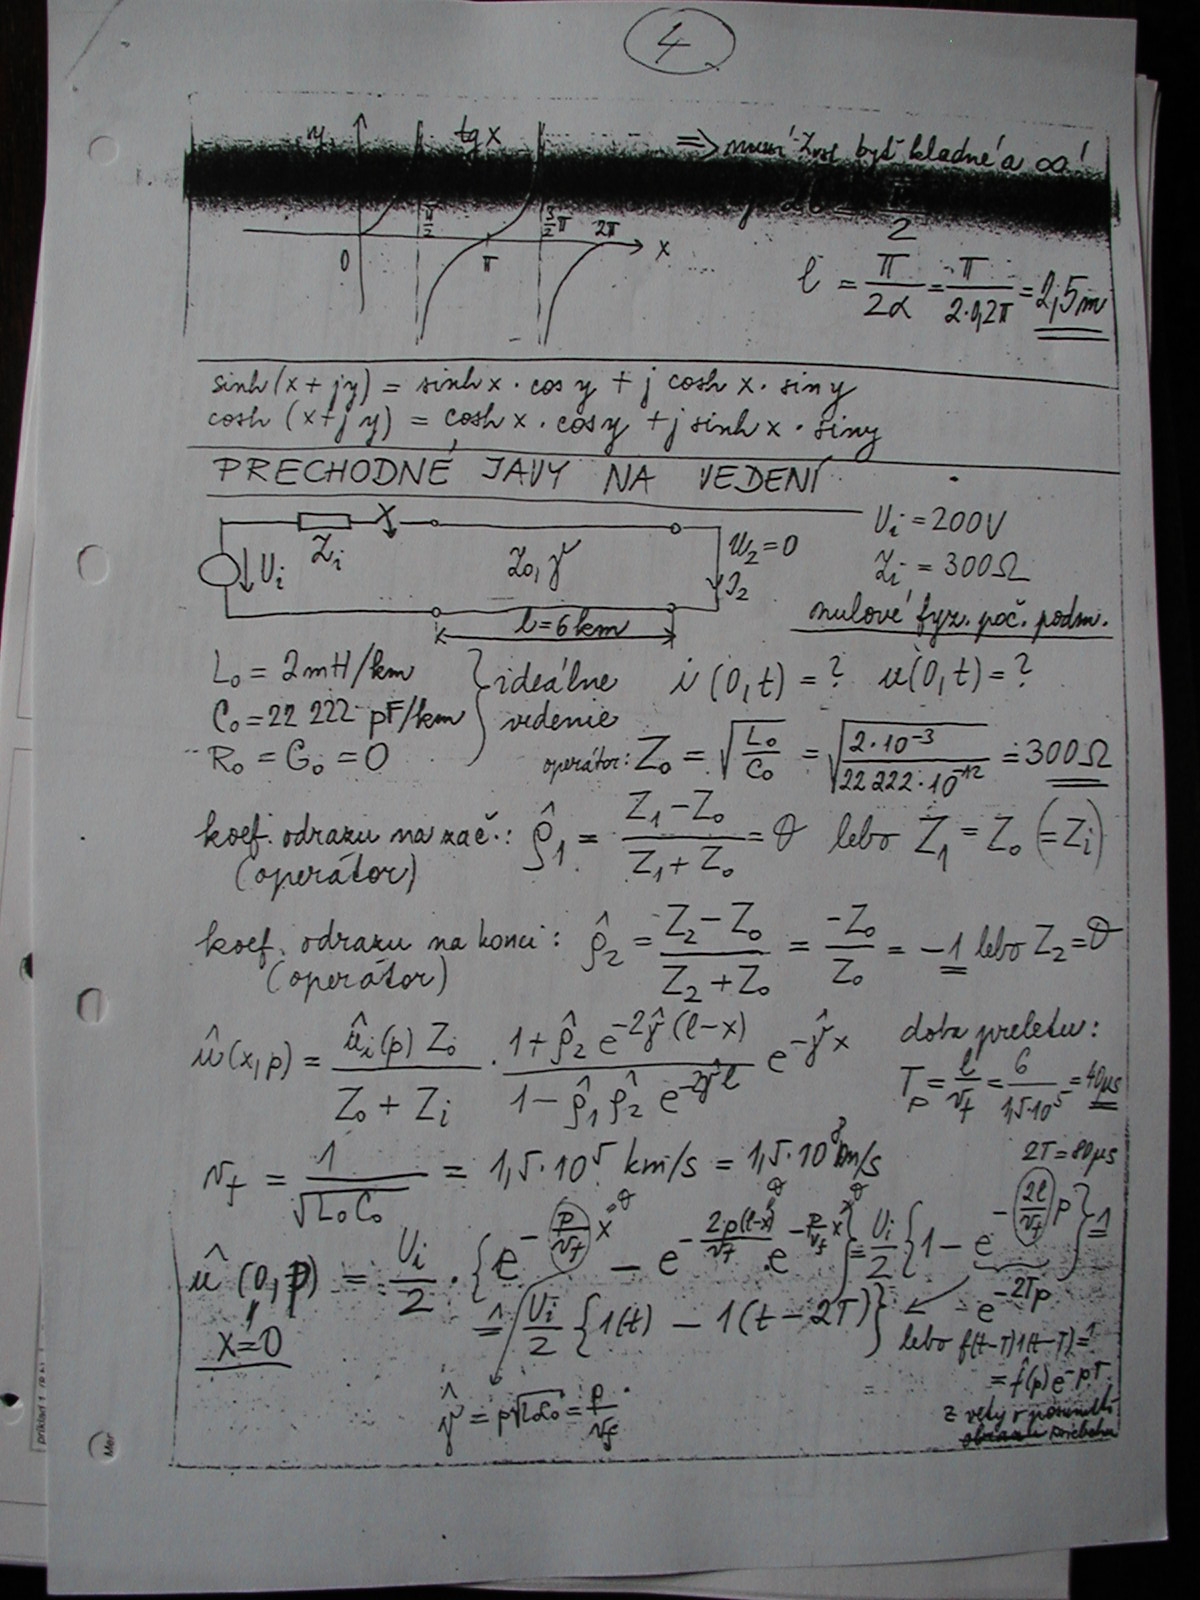 4
y tg x ⇒ musí Zvst byť kladné a ∞!
0 π/2 π 3/2 π 2π x
2
l = π/2α = π/2·0,2π = 2,5m
sinh (x + jy) = sinh x · cos y + j cosh x · sin y
cosh (x + jy) = cosh x · cos y + j sinh x · sin y
PRECHODNÉ JAVY NA VEDENÍ
Ui Zi Z0, γ u2 = 0 I2
l = 6 km
Ui = 200V
Zi = 300Ω
nulové fyz. poč. podm.
L0 = 2mH/km
C0 = 22 222 pF/km
R0 = G0 = 0
} ideálne vedenie
i (0, t) = ? u (0, t) = ?
operátor: Z0 = √(L0/C0) = √(2·10^-3 / 22 222·10^-12) = 300Ω
koef. odrazu na zač.: ρ̂1 = (Z1 − Z0)/(Z1 + Z0) = 0 lebo Z1 = Z0 (= Zi)
(operátor)
koef. odrazu na konci: ρ̂2 = (Z2 − Z0)/(Z2 + Z0) = −Z0/Z0 = −1 lebo Z2 = 0
(operátor)
û(x, p) = ûi(p) Z0/(Z0 + Zi) · (1 + ρ̂2 e^-2γ̂(l−x))/(1 − ρ̂1 ρ̂2 e^-2γ̂l) e^-γ̂x
doba preletu:
Tp = l/vf = 6/1,5·10^5 = 40μs
vf = 1/√(L0 C0) = 1,5·10^5 km/s = 1,5·10^8 m/s
2T = 80μs
û (0, p) = Ui/2 · {e^-(p/vf)x − e^-2p(l-x)/vf · e^-(p/vf)x} = Ui/2 {1 − e^-(2l/vf)p} ≙
x = 0
≙ Ui/2 {1(t) − 1(t − 2T)}
e^-2Tp
lebo f(t−T)1(t−T) ≙
= f̂(p) e^-pT
γ̂ = p√(L0C0) = p/vf
z vety o posunutí